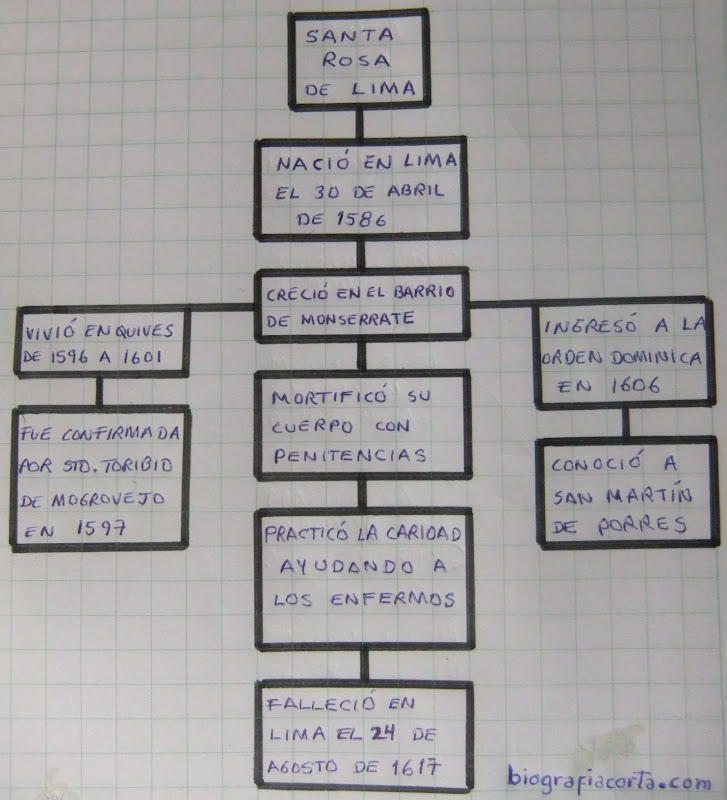 SANTA
ROSA
DE LIMA
NACIÓ EN LIMA
EL 30 DE ABRIL
DE 1586
CRECIÓ EN EL BARRIO
DE MONSERRATE
VIVIÓ EN QUIVES
DE 1596 A 1601
FUE CONFIRMADA
POR STO. TORIBIO
DE MOGROVEJO
EN 1597
MORTIFICÓ SU
CUERPO CON
PENITENCIAS
PRACTICÓ LA CARIDAD
AYUDANDO A
LOS ENFERMOS
FALLECIÓ EN
LIMA EL 24 DE
AGOSTO DE 1617
INGRESÓ A LA
ORDEN DOMINICA
EN 1606
CONOCIÓ A
SAN MARTÍN
DE PORRES
biografiacorta.com